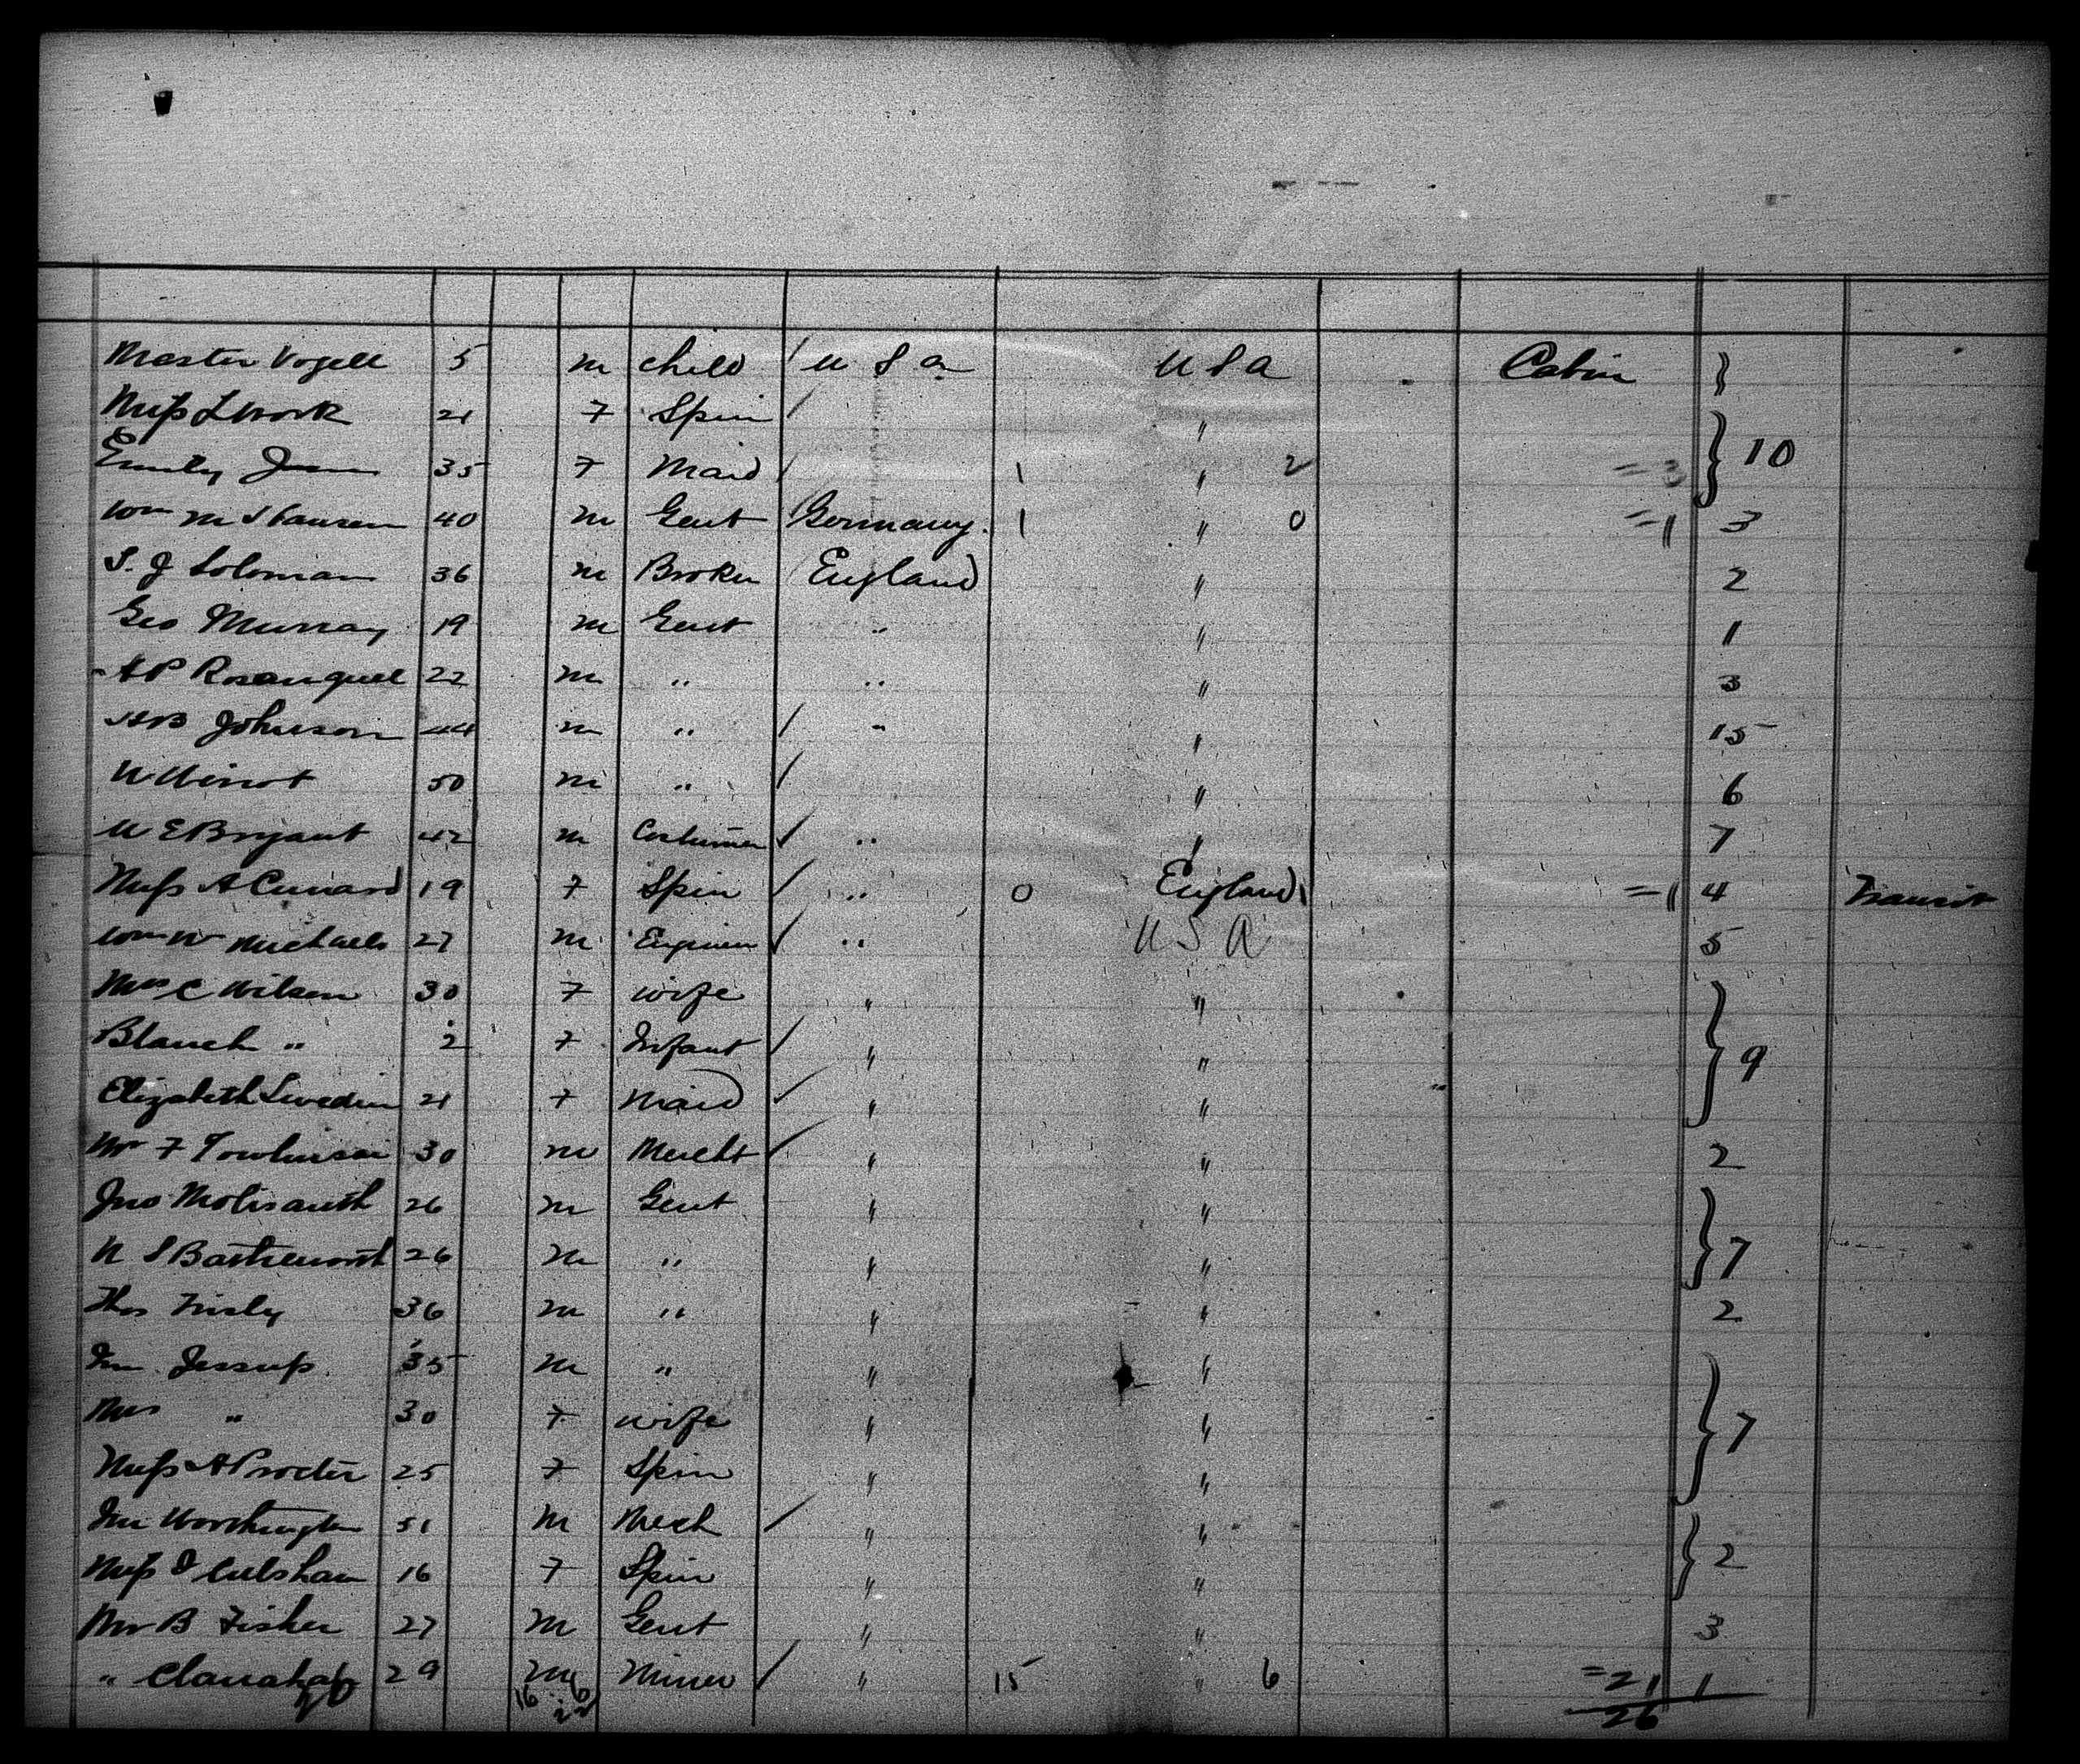 Master Vogell 5 m child / U S A U S A Cabin }
Miss L Work 21 7 Spin / "
Emily 35 7 Maid / 1 " 2 = 3 } 10
Wm M 40 m Gent Germany. 1 " 0 = 1 3
S. J Soloman 36 m Broker England " 2
Geo Murray 19 m Gent " " 1
A P 22 m " " " 3
Johnson 44 m " / " " 15
W Minot 50 m " / " 6
W E Bryant 42 m Costumer / " " 7
Miss A Cunard 19 7 Spin / " 0 England 1 = 1 4 Transit
Wm W Michaels 27 m Engineer / " U S A 5
Mrs C Wilson 30 7 wife " "
Blanch " 2 7 Infant / " " } 9
Elizabeth 21 7 Maid / " "
Mr F Tomlinson 30 m Mercht / " " 2
Jno 26 m Gent " "
26 m " " " } 7
Thos 36 m " " " 2
Jessup. 35 m " " "
Mrs " 30 7 wife " " } 7
Miss A Procter 25 7 Spin " "
Worthington 51 m Mech / " "
Miss Culshaw 16 7 Spin " " } 2
Mr B Fisher 27 m Gent " " 3
" 29 m Miner / " 15 " 6 = 21 1
16 6 22 26